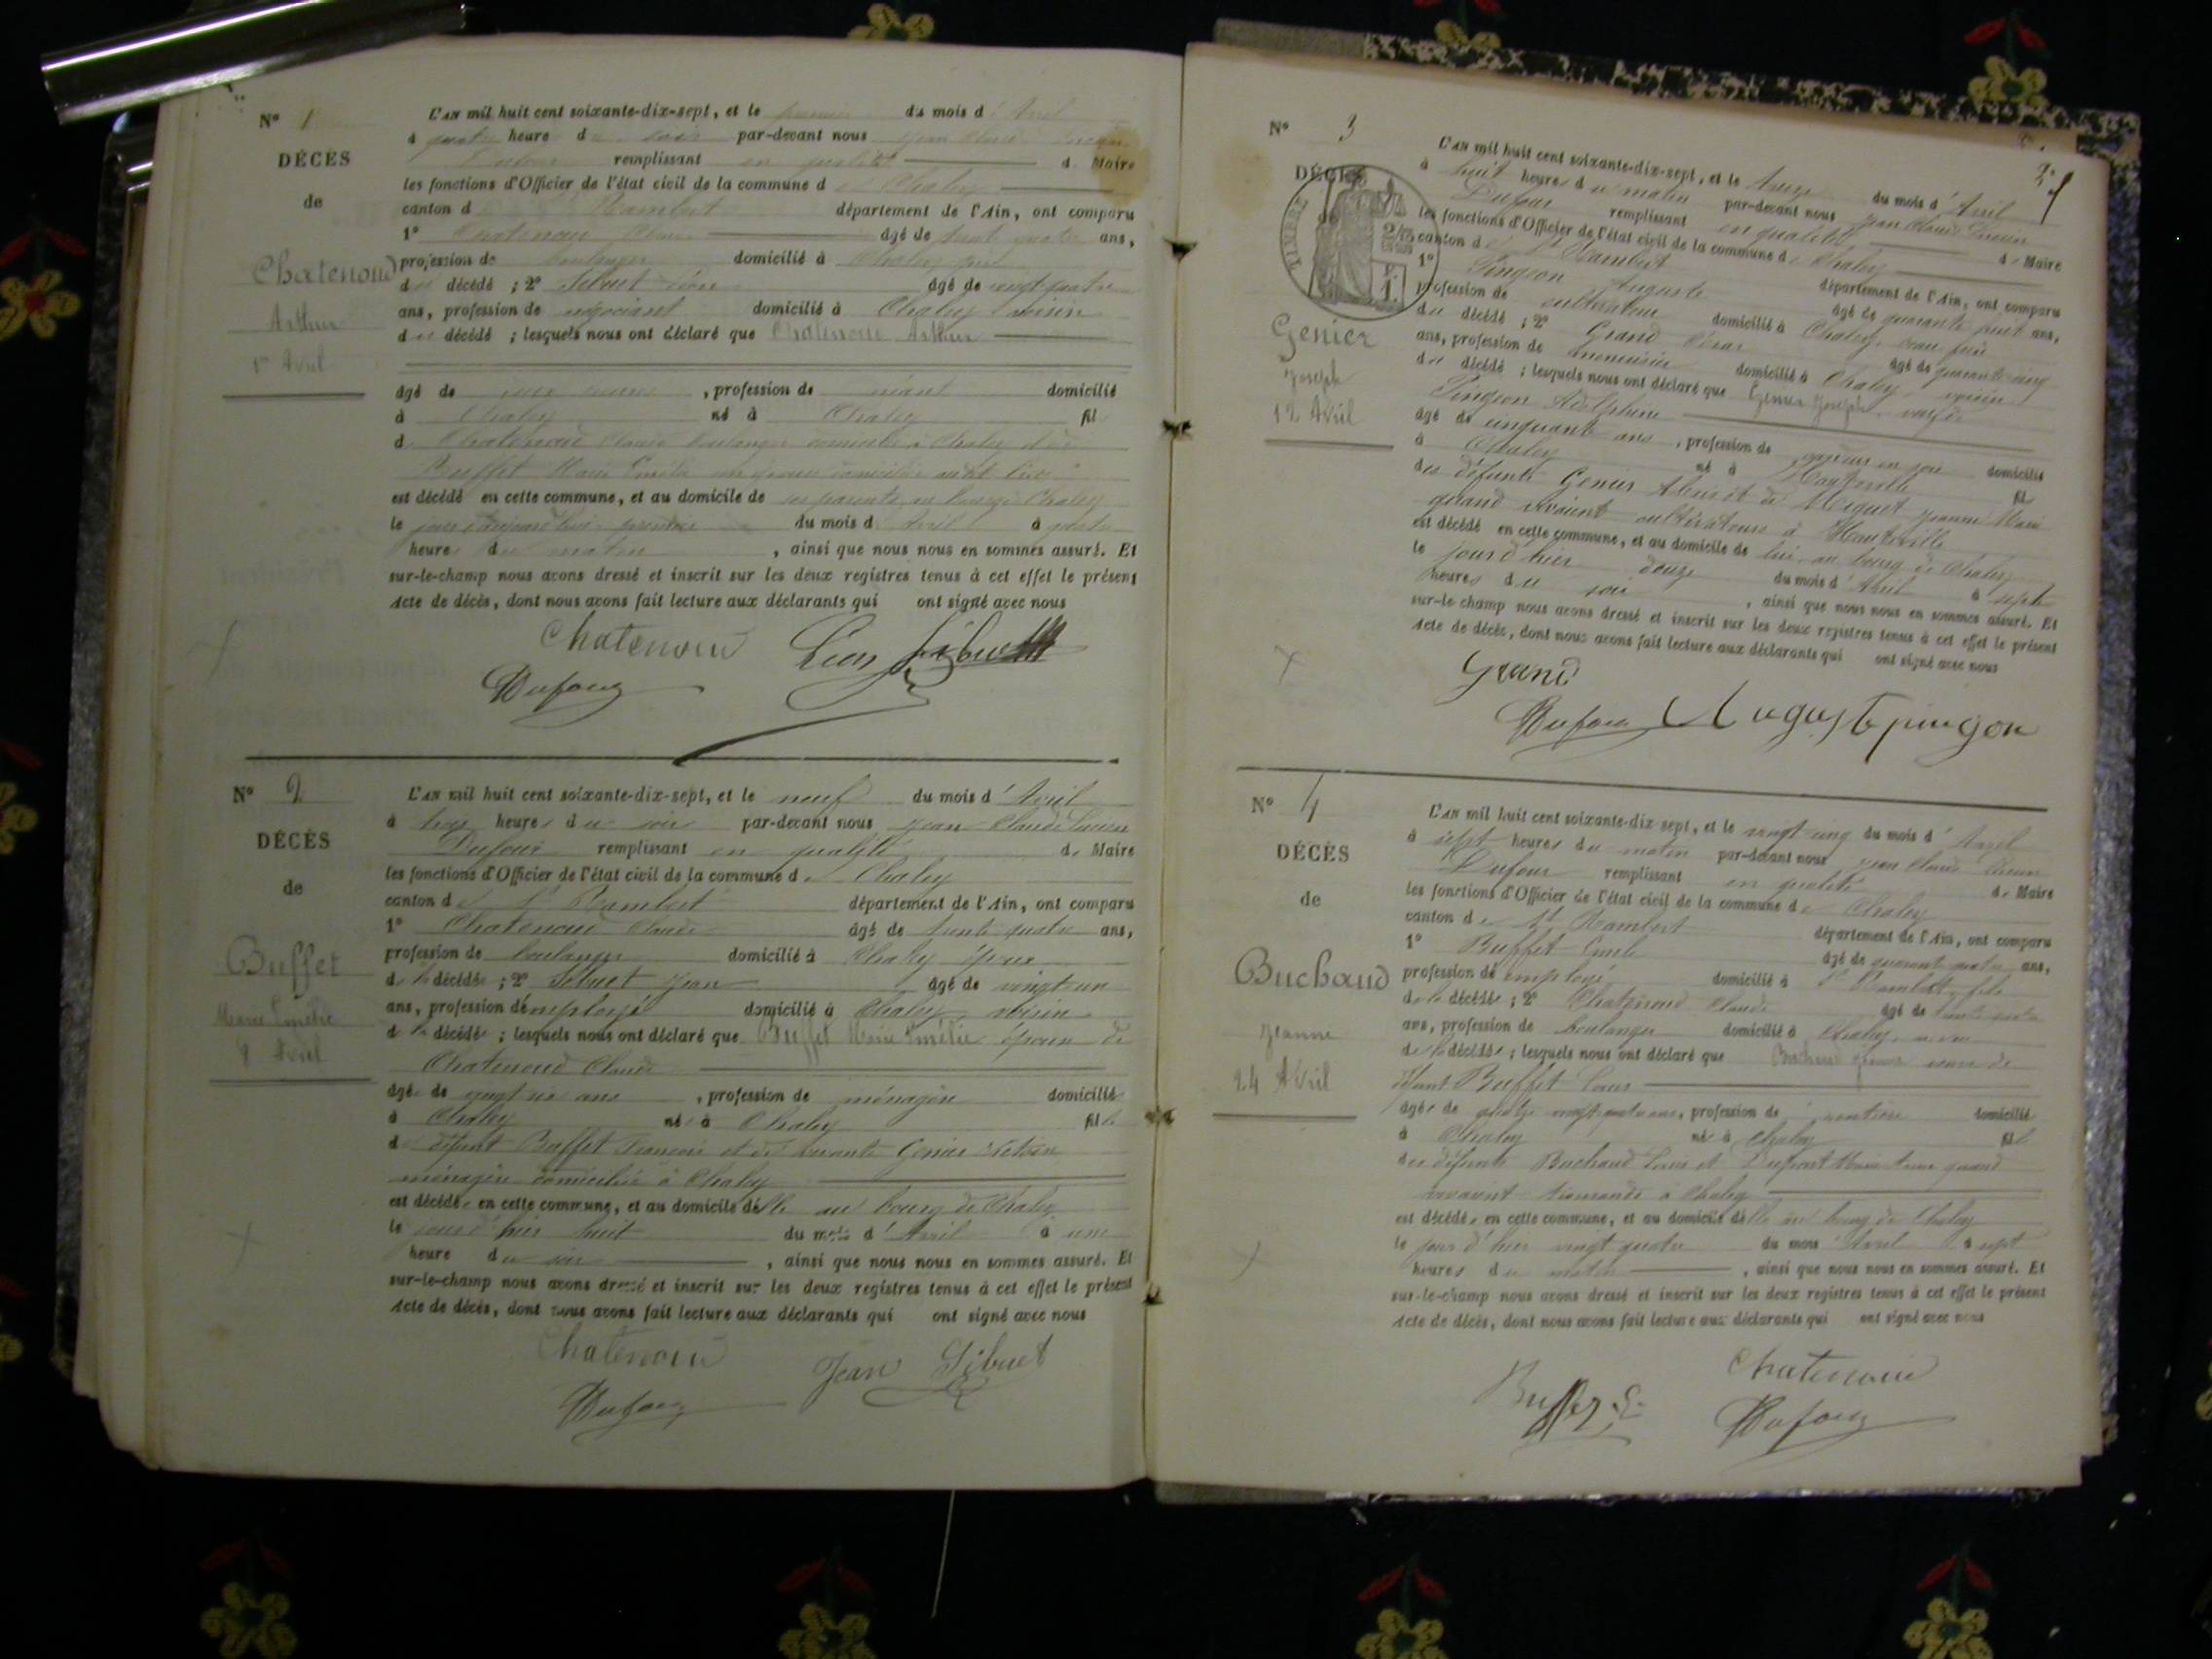 N° 1
DÉCÈS
de
Chatenoud
Arthur
1er Avril
L'AN mil huit cent soixante-dix-sept, et le premier du mois d'Avril
à quatre heure du soir par-devant nous Jean Claude
Dufour remplissant en qualité de Maire
les fonctions d'Officier de l'état civil de la commune de Chaley
canton de Rambert département de l'Ain, ont comparu
1° Chatenoud Claude âgé de trente quatre ans,
profession de boulanger domicilié à Chaley
du décédé ; 2° Sibuet Léon âgé de vingt quatre
ans, profession de négociant domicilié à Chaley voisin
du décédé ; lesquels nous ont déclaré que Chatenoud Arthur
âgé de , profession de néant domicilié
à Chaley né à Chaley fil
de Chatenoud Claude boulanger domicilié à Chaley et de
Buffet Marie Emélie
est décédé en cette commune, et au domicile de ses parents au bourg de Chaley
le jour d'aujourd'hui premier du mois d'Avril à quatre
heures du matin , ainsi que nous nous en sommes assuré. Et
sur-le-champ nous avons dressé et inscrit sur les deux registres tenus à cet effet le présent
Acte de décès, dont nous avons fait lecture aux déclarants qui ont signé avec nous
Chatenoud Léon Sibuet
Dufour
N° 2
DÉCÈS
de
Buffet
Marie Emélie
8 Avril
L'AN mil huit cent soixante-dix-sept, et le neuf du mois d'Avril
à trois heures du soir par-devant nous Jean Claude Lucien
Dufour remplissant en qualité de Maire
les fonctions d'Officier de l'état civil de la commune de Chaley
canton de St Rambert département de l'Ain, ont comparu
1° Chatenoud Claude âgé de trente quatre ans,
profession de boulanger domicilié à Chaley époux
de la décédée ; 2° Sibuet Jean âgé de vingt un
ans, profession d'employé domicilié à Chaley voisin
de la décédée ; lesquels nous ont déclaré que Buffet Marie Emélie épouse de
Chatenoud Claude
âgée de vingt six ans , profession de ménagère domiciliée
à Chaley née à Chaley fille
de défunt Buffet François et de vivante Genier
ménagère domiciliée à Chaley
est décédée en cette commune, et au domicile d'elle au bourg de Chaley
le jour d'hier huit du mois d'Avril à une
heure du soir , ainsi que nous nous en sommes assuré. Et
sur-le-champ nous avons dressé et inscrit sur les deux registres tenus à cet effet le présent
Acte de décès, dont nous avons fait lecture aux déclarants qui ont signé avec nous
Chatenoud Jean Sibuet
Dufour
N° 3
DÉCÈS
TIMBRE
Genier
Joseph
12 Avril
L'AN mil huit cent soixante-dix-sept, et le treize du mois d'Avril
à huit heures du matin par-devant nous Jean Claude Lucien
Dufour remplissant en qualité de Maire
les fonctions d'Officier de l'état civil de la commune de Chaley
canton de St Rambert département de l'Ain, ont comparu
1° Pingeon Auguste âgé de quarante huit ans,
profession de cultivateur domicilié à Chaley beau frère
du décédé ; 2° Grand César âgé de quarante cinq
ans, profession de menuisier domicilié à Chaley voisin
du décédé ; lesquels nous ont déclaré que Genier Joseph
Pingeon Adelphine
âgé de cinquante ans , profession de domicilié
à Chaley né à Hauteville fil
des défunts Genier Alexis et de Miguet Jeanne Marie
quand vivaient cultivateurs à Hauteville
est décédé en cette commune, et au domicile de lui au bourg de Chaley
le jour d'hier douze du mois d'Avril à sept
heures du soir , ainsi que nous nous en sommes assuré. Et
sur-le champ nous avons dressé et inscrit sur les deux registres tenus à cet effet le présent
Acte de décès, dont nous avons fait lecture aux déclarants qui ont signé avec nous
Grand
Dufour Auguste pingon
N° 4
DÉCÈS
de
Buchaud
Jeanne
24 Avril
L'AN mil huit cent soixante-dix-sept, et le vingt cinq du mois d'Avril
à sept heures du matin par-devant nous Jean Claude Lucien
Dufour remplissant en qualité de Maire
les fonctions d'Officier de l'état civil de la commune de Chaley
canton de St Rambert département de l'Ain, ont comparu
1° Buffet Emile âgé de quarante quatre ans,
profession d'employé domicilié à St Rambert fils
de la décédée ; 2° Chatenoud Claude âgé de trente quatre
ans, profession de boulanger domicilié à Chaley
de la décédée ; lesquels nous ont déclaré que Buchaud Jeanne veuve de
défunt Buffet Louis
âgée de quatre vingt quatre ans, profession de rentière domicilié
à Chaley née à Chaley fil
des défunts Buchaud Louis et Dupont Marie Anne quand
vivaient à Chaley
est décédée en cette commune, et au domicile d'elle au bourg de Chaley
le jour d'hier vingt quatre du mois d'Avril à sept
heures du matin , ainsi que nous nous en sommes assuré. Et
sur-le-champ nous avons dressé et inscrit sur les deux registres tenus à cet effet le présent
Acte de décès, dont nous avons fait lecture aux déclarants qui ont signé avec nous
Chatenoud
Buffet E.
Dufour